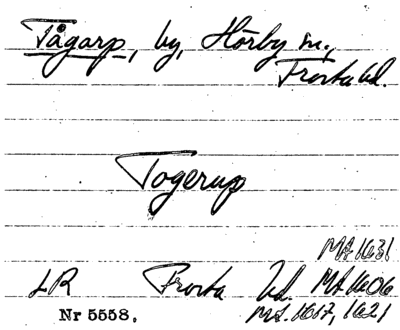 Tågarp, by, Hörby sn.,
Frosta hd.
Togerup
MA 1631
LR Frosta hd. MA 1606
Nr 5558. MA. 1617, 1621